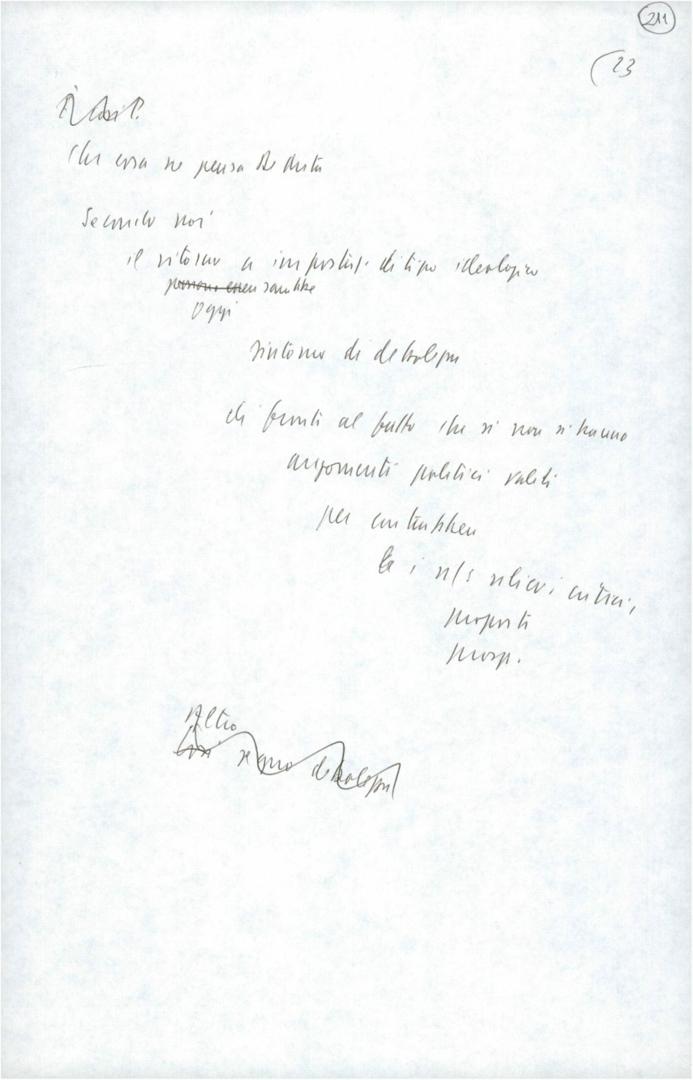 211
(23
Che cosa ne pensa De Mita
Secondo noi
il ritorno a impostaz. di tipo ideologico
sarebbe
oggi
sintomo di debolezza
di fronte al fatto che si non si hanno
argomenti politici validi
per contrabbattere
i n/s rilievi critici,
proposte
prosp.
Altro
Così segno debolezza